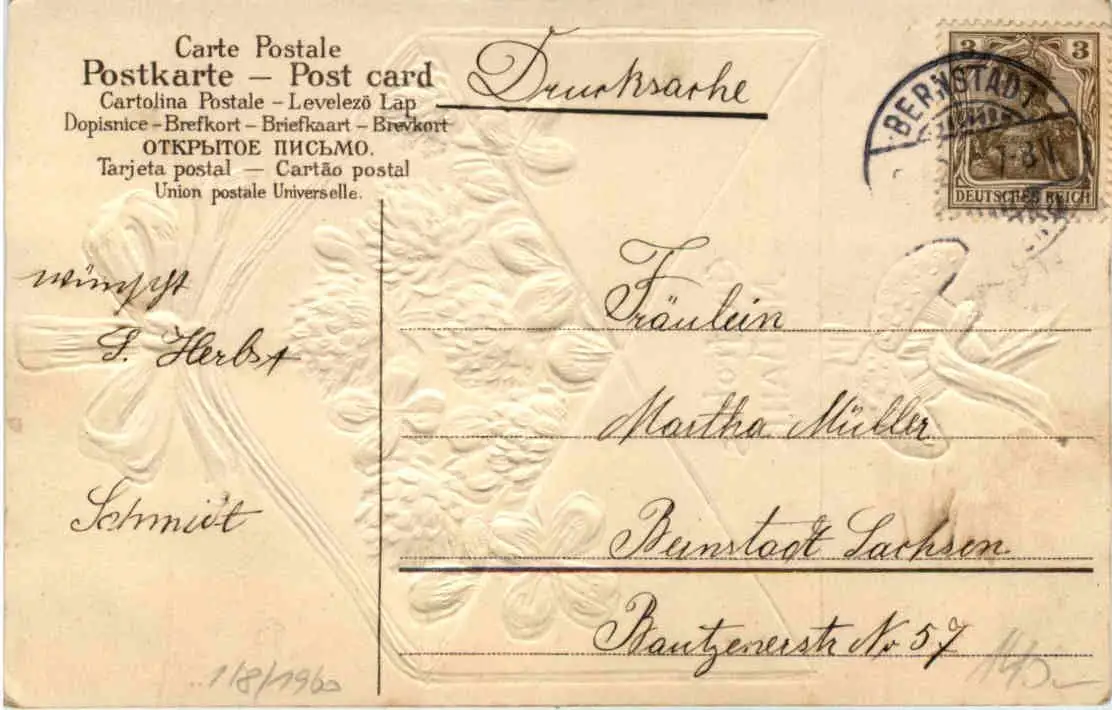 Carte Postale
Postkarte – Post card
Cartolina Postale – Levelező Lap
Dopisnice – Brefkort – Briefkaart – Brevkort
ОТКРЫТОЕ ПИСЬМО.
Tarjeta postal — Cartão postal
Union postale Universelle.
Drucksache
3 3
BERNSTADT
DEUTSCHES REICH
wünscht
Herbst
Schmidt
Fräulein
Martha Müller
Bernstadt Sachsen
Bautzenerstr No 57